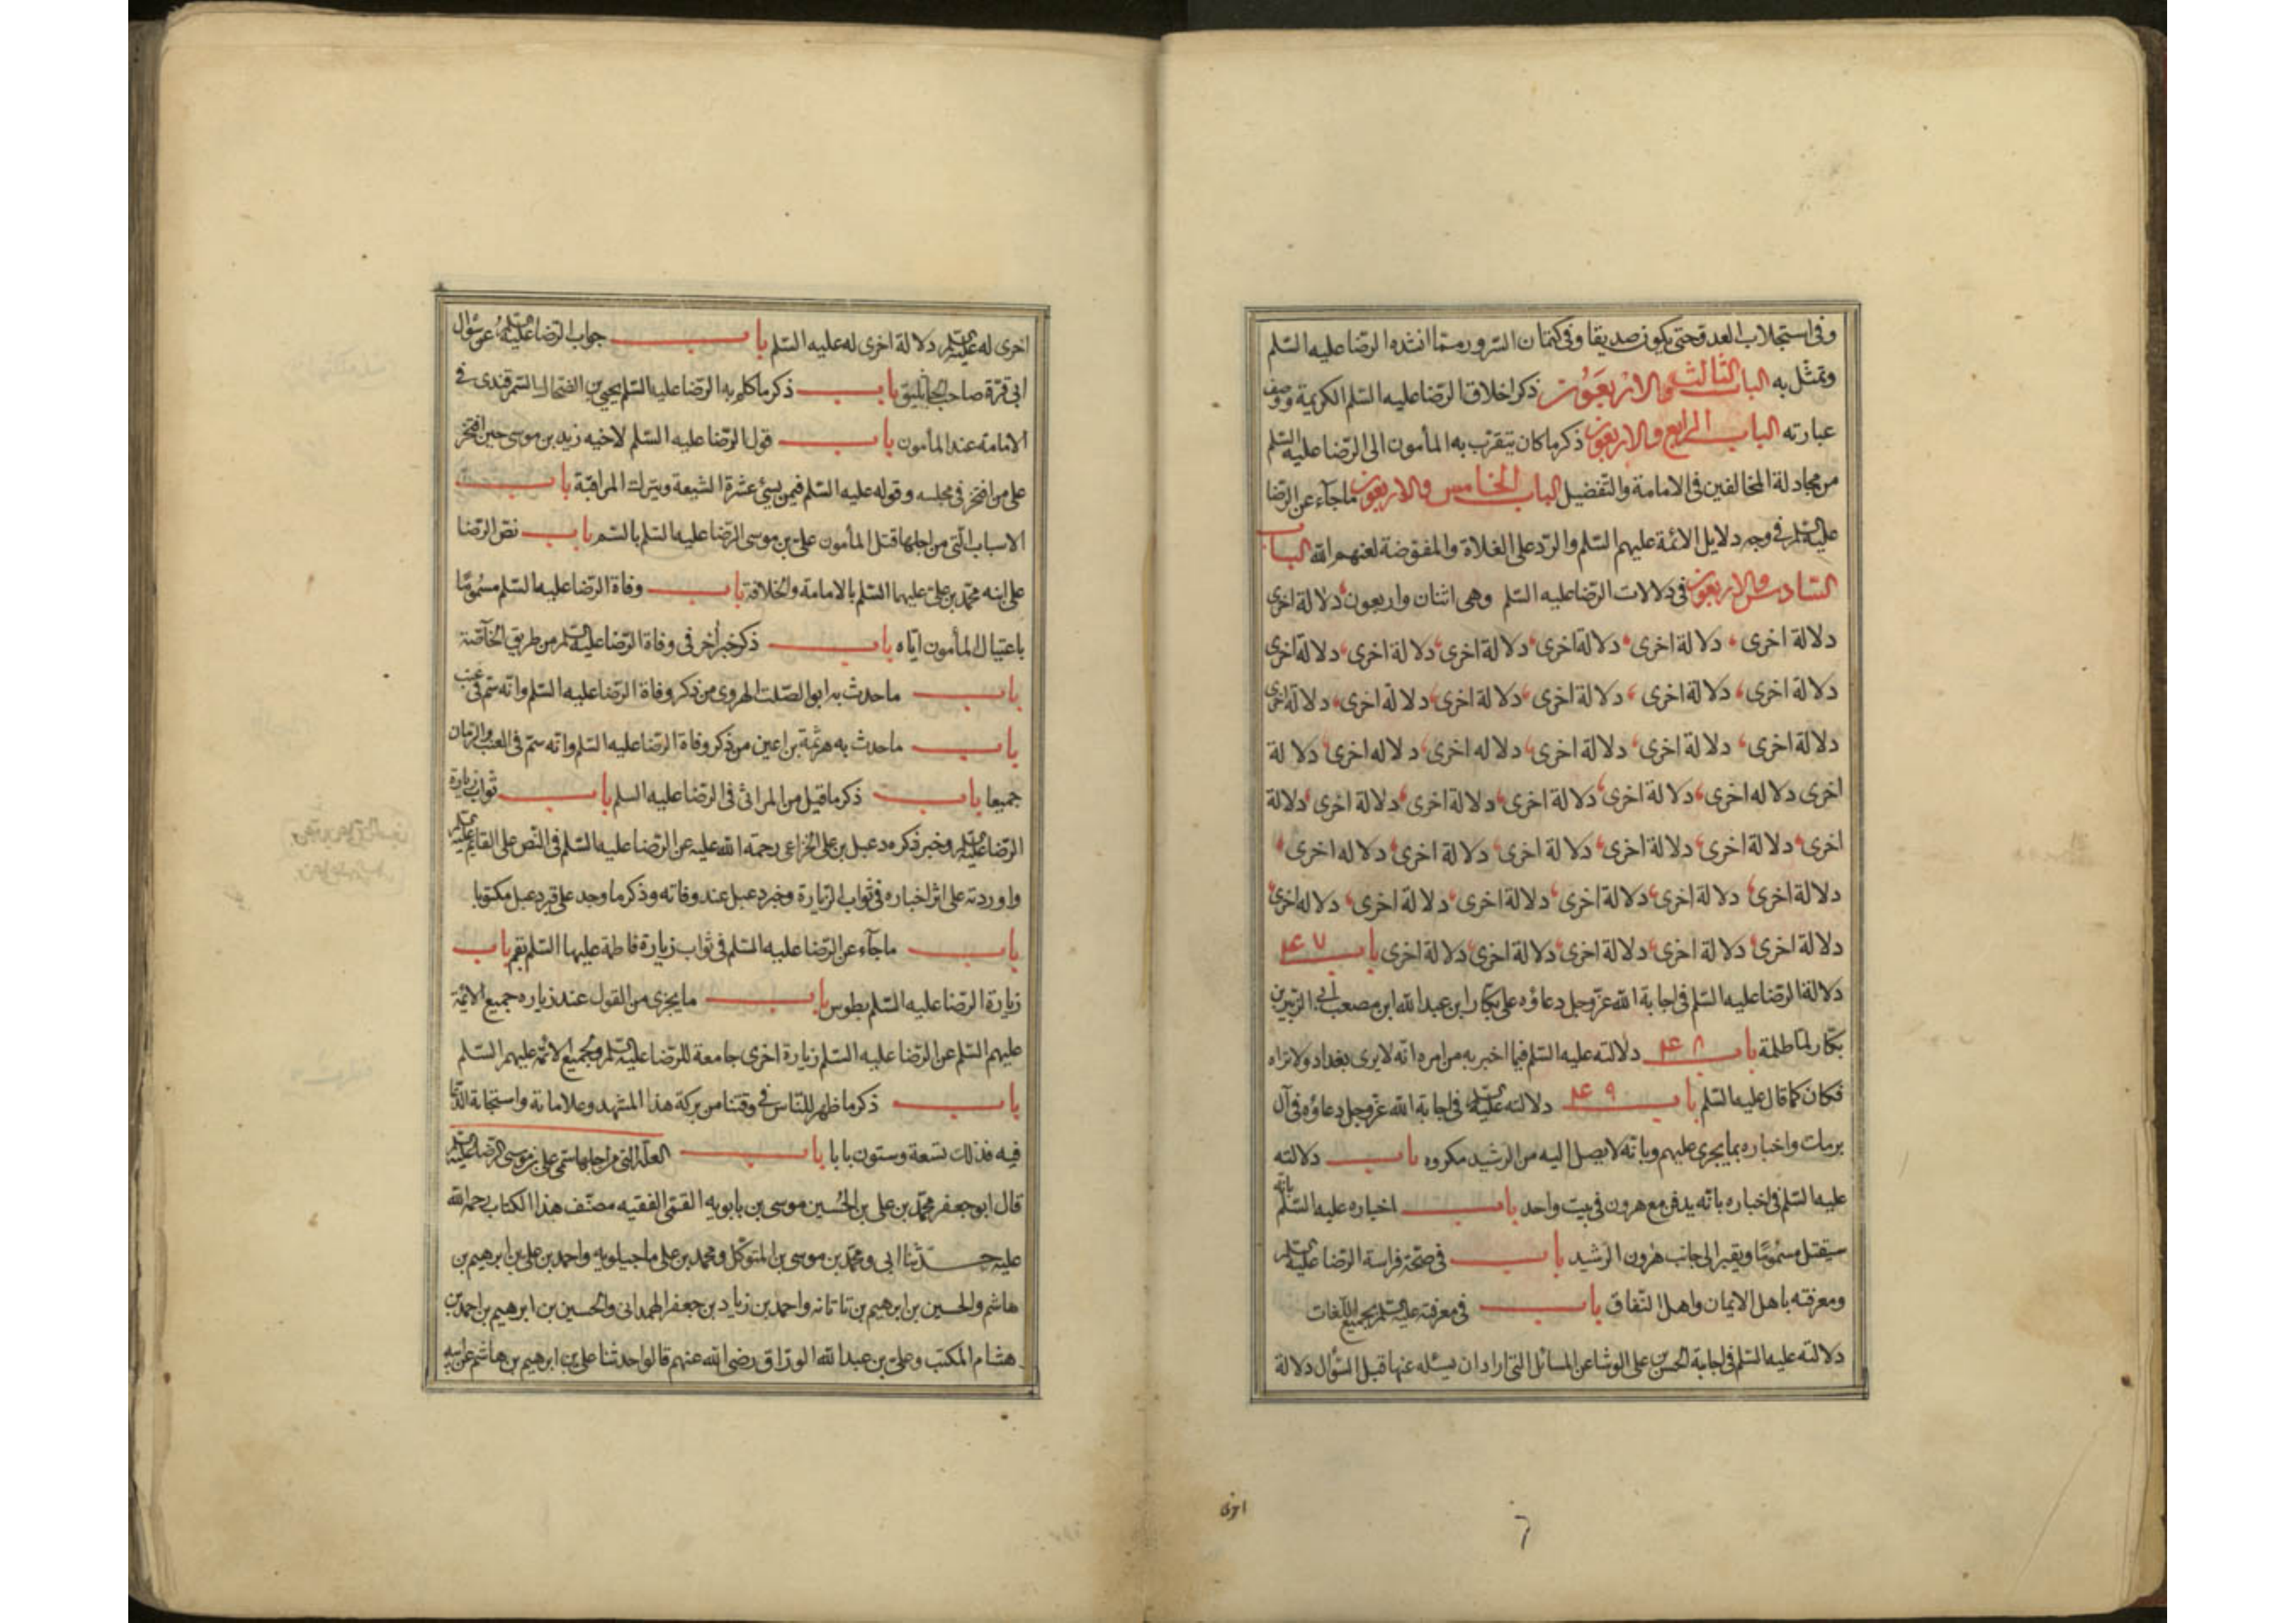 وفى استجلاب العدو حتى يكون صديقا وفى كتمان السر ومما انشده الرضا عليه السلم
وتمثل به الباب الثالث والاربعون ذكر اخلاق الرضا عليه السلم الكريمة ووصف
عبارته الباب الرابع والاربعون ذكر ما كان يتقرب به المأمون الى الرضا عليه السلم
من مجادلة المخالفين فى الامامة والتفضيل الباب الخامس والاربعون ماجآء عن الرضا
عليه السلم فى وجه دلايل الائمة عليهم السلم والرد على الغلاة والمفوضة لعنهم الله الباب
السادس والاربعون فى دلالات الرضا عليه السلم وهى اثنان واربعون دلالة اخرى
دلالة اخرى، دلالة اخرى، دلالة اخرى، دلالة اخرى، دلالة اخرى، دلالة اخرى
دلالة اخرى، دلالة اخرى، دلالة اخرى، دلالة اخرى، دلالة اخرى، دلالة اخرى
دلالة اخرى، دلالة اخرى، دلالة اخرى، دلاله اخرى، دلاله اخرى، دلالة
اخرى دلاله اخرى، دلالة اخرى، دلالة اخرى، دلالة اخرى، دلالة اخرى، دلالة
اخرى، دلالة اخرى، دلالة اخرى، دلالة اخرى، دلالة اخرى، دلاله اخرى،
دلالة اخرى، دلالة اخرى، دلالة اخرى، دلالة اخرى، دلالة اخرى، دلاله اخرى
دلالة اخرى، دلالة اخرى، دلالة اخرى، دلالة اخرى، دلالة اخرى باب ۴۷
دلالة الرضا عليه السلم فى اجابة الله عز وجل دعاؤه على بكار ابن عبد الله ابن مصعب ابن الزبير بن
بكار لما ظلمه باب ۴۸ دلالته عليه السلم فيما اخبر به من امره انه لا يرى بغداد ولا تراه
فكان كما قال عليه السلم باب ۴۹ دلالته عليه السلم فى اجابة الله عز وجل دعاؤه فى آل
برمك واخباره بما يجرى عليهم وبانه لا يصل اليه من الرشيد مكروه باب دلالته
عليه السلم فى اخباره بانه يدفن مع هرون فى بيت واحد باب اخباره عليه السلم بانه
سيقتل مسموما ويقبر الى جانب هرون الرشيد باب فى صحة فراسة الرضا عليه السلم
ومعرفته باهل الايمان واهل النفاق باب فى معرفته عليه السلم بجميع اللغات
دلالته عليه السلم فى اجابة الحسن بن على الوشا عن المسائل التى اراد ان يسئله عنها قبل السؤال دلالة
اخرى
۶
اخرى له عليه السلم دلالة اخرى له عليه السلم باب جواب الرضا عليه السلم عن سؤال
ابى قرة صاحب الجاثليق باب ذكر ما كلم به الرضا عليه السلم يحيى بن الضحاك السمرقندى فى
الامامة عند المأمون باب قول الرضا عليه السلم لاخيه زيد بن موسى حين افتخر
على من افتخر فى مجلسه وقوله عليه السلم فيمن يسئ عشرة الشيعة ويترك المراقبة باب
الاسباب التى من اجلها قتل المأمون على بن موسى الرضا عليه السلم بالسم باب نص الرضا
على ابنه محمد بن على عليهما السلم بالامامة والخلافة باب وفاة الرضا عليه السلم مسموما
باغتيال المأمون اياه باب ذكر خبر اخر فى وفاة الرضا عليه السلم من طريق الخآصة
باب ماحدث به ابو الصلت الهروى من ذكر وفاة الرضا عليه السلم وانه سم فى عنب
باب ماحدث به هرثمة بن اعين من ذكر وفاة الرضا عليه السلم وانه سم فى العنب والرمان
جميعا باب ذكر ماقيل من المراثى فى الرضا عليه السلم باب ثواب زيارة
الرضا عليه السلم وخبر ذكره دعبل بن على الخزاعى رحمة الله عليه عن الرضا عليه السلم فى النص على القايم عليه السلم
واوردته على اثر اخباره فى ثواب الزيارة وخبر دعبل عند وفاته وذكر ما وجد على قبر دعبل مكتوبا
باب ماجآء عن الرضا عليه السلم فى ثواب زيارة فاطمة عليها السلم بقم باب
زيارة الرضا عليه السلم بطوس باب ما يجزى من القول عند زياره جميع الائمة
عليهم السلم عن الرضا عليه السلم زيارة اخرى جامعة للرضا عليه السلم ولجميع الائمة عليهم السلم
باب ذكر ما ظهر للناس فى وقتنا من بركة هذا المشهد وعلاماته واستجابة الدعا
فيه فذلك تسعة وستون بابا باب العلة التى من اجلها سمى على بن موسى الرضا عليه السلم
قال ابو جعفر محمد بن على بن الحسين موسى بن بابويه القمى الفقيه مصنف هذا الكتاب رحمة الله
عليه حدثنا ابى ومحمد بن موسى بن المتوكل ومحمد بن على ماجيلويه واحمد بن على بن ابرهيم بن
هاشم والحسين بن ابرهيم بن تاتانه واحمد بن زياد بن جعفر الهمدانى والحسين بن ابرهيم بن احمد بن
هشام المكتب وعلى بن عبد الله الوراق رضى الله عنهم قالوا حدثنا على بن ابرهيم بن هاشم عن ابيه